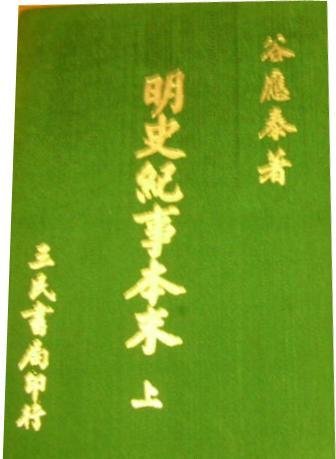 谷應泰著
明史紀事本末 上
三民書局印行